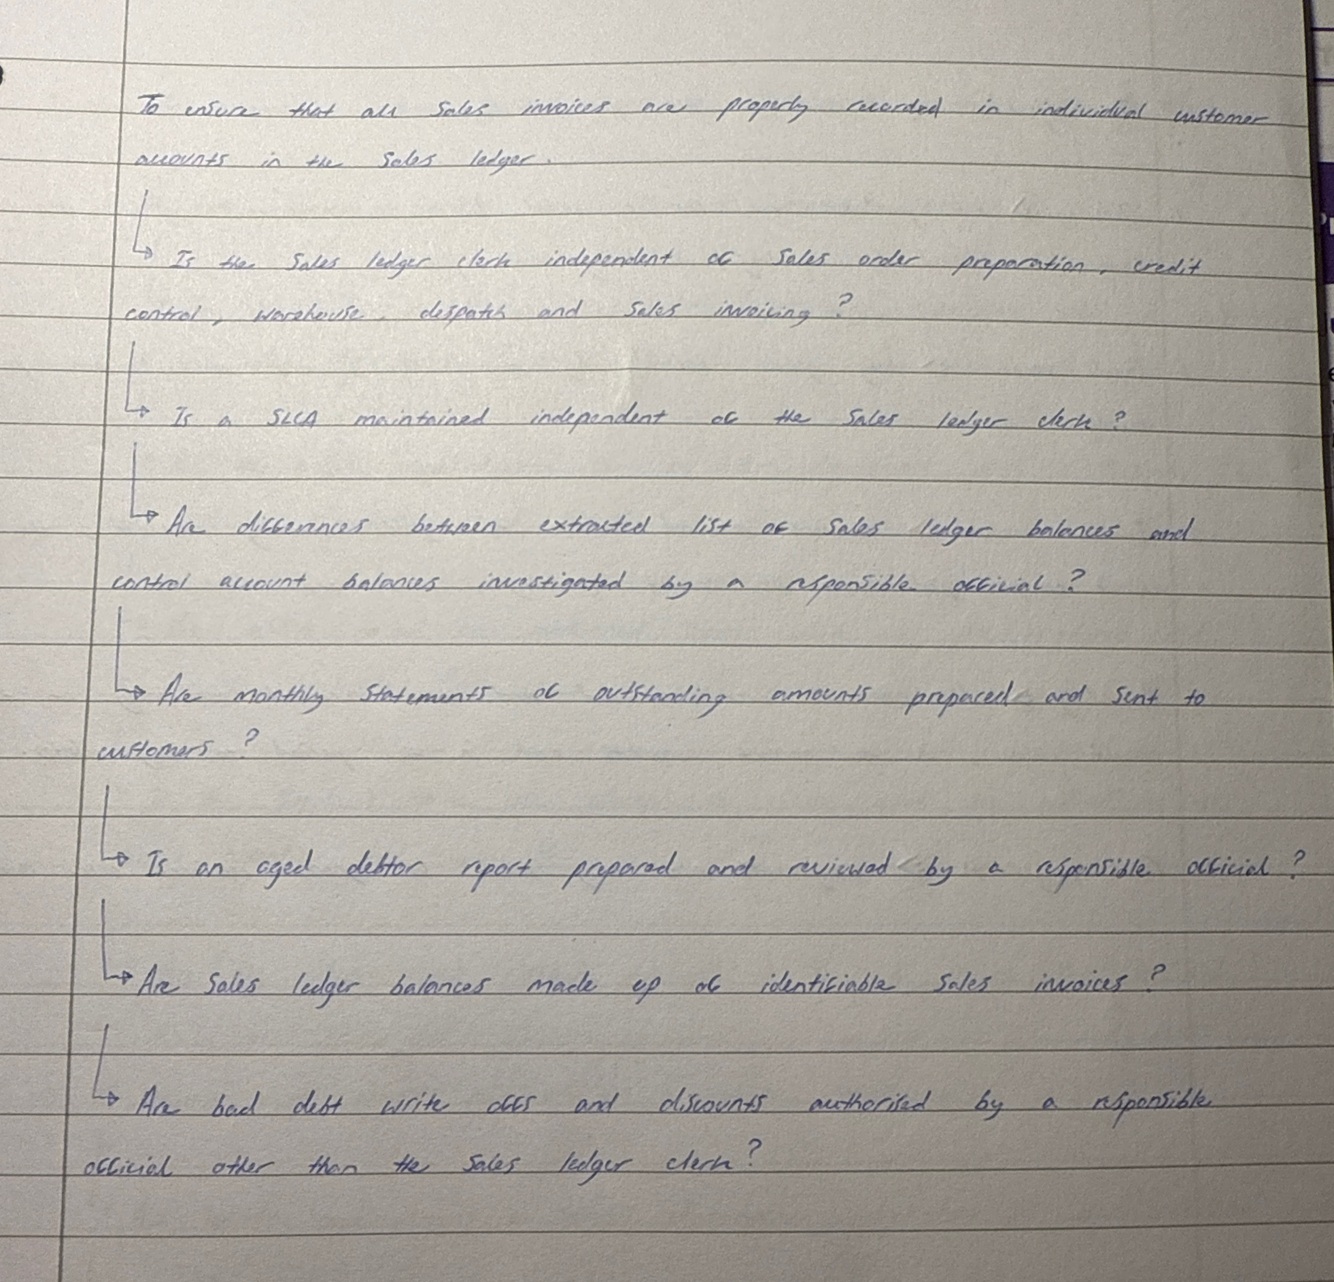 To ensure that all sales invoices are properly recorded in individual customer
accounts in the sales ledger.
Is the sales ledger clerk independent of sales order preparation, credit
control, warehouse, despatch and sales invoicing?
Is a SLCA maintained independent of the sales ledger clerk?
Are differences between extracted list of sales ledger balances and
control account balances investigated by a responsible official?
Are monthly statements of outstanding amounts prepared and sent to
customers?
Is an aged debtor report prepared and reviewed by a responsible official?
Are sales ledger balances made up of identifiable sales invoices?
Are bad debt write offs and discounts authorised by a responsible
official other than the sales ledger clerk?